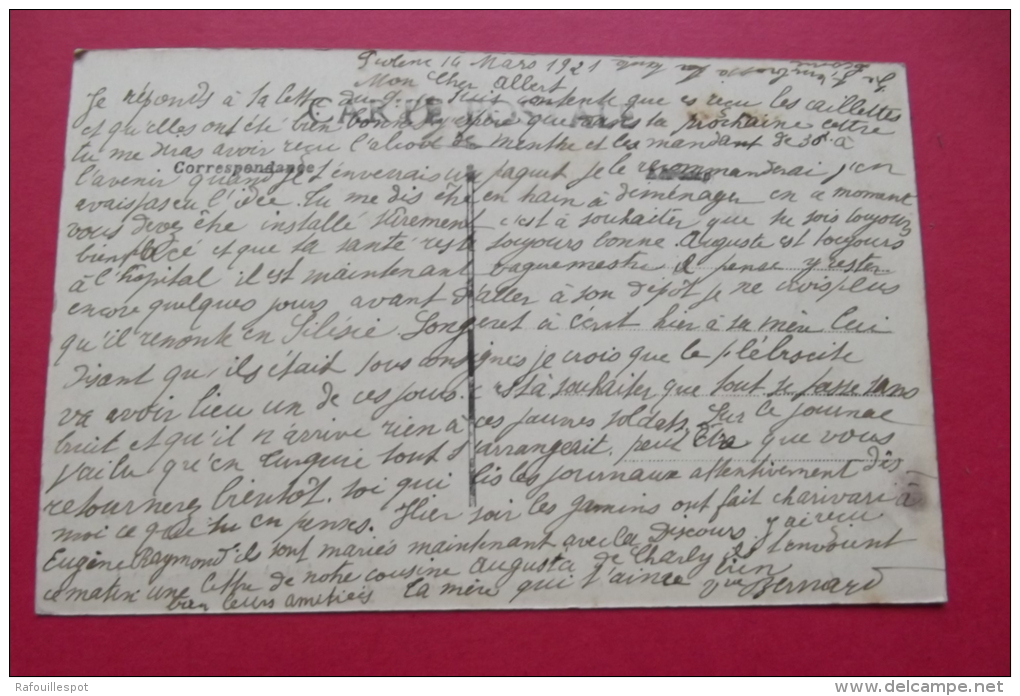 14 Mars 1921
Mon Cher Albert
Je réponds à ta lettre du 9 je suis contente que es reçu les caillettes
CARTE POSTALE
et qu'elles ont été bien bonnes j'espère que dans ta prochaine lettre
tu me diras avoir reçu l'alcool de menthe et les mandant de 30f à
Correspondance
l'avenir quand je t'enverrais un paquet je le recommanderai j'en
avais pas eu l'idée. Tu me dis être en train à déménager en a moment
vous devez être installé sûrement c'est à souhaiter que tu sois toujours
bien placé et que ta santé reste toujours bonne. Auguste est toujours
à l'hopital il est maintenant vaguemestre il pense y rester
encore quelques jours avant d'aller à son dépôt je ne crois plus
qu'il remonte en Silésie. Longeret à écrit hier à sa mère lui
disant qu'ils était tous consignés je crois que le plébicite
va avoir lieu un de ces jours. c'est à souhaiter que tout se passe sans
bruit et qu'il n'arrive rien à ces jeunes soldats. Sur le journal
j'ai lu qu'en Turquie tout s'arrangeait. peut être que vous
retournerez bientôt. toi qui lis les journaux attentivement dis
moi ce que tu en penses. Hier soir les gamins ont fait charivari à
Eugène Raymond ils sont mariés maintenant avec la Discours. j'ai reçu
ce matin une lettre de notre cousine Augusta de Charly ils t'envoient bien
bien leurs amitiés Ta mère qui t'aime Vve Bernard
Rafouillespot
www.delcampe.net